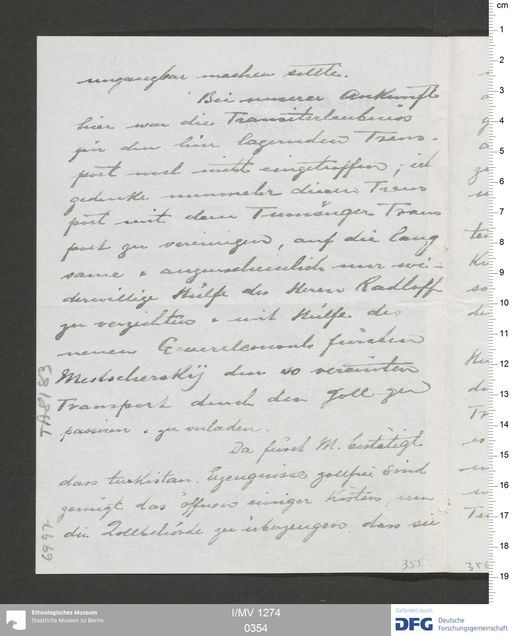 ungangbar machen sollte.
Bei unserer Ankunft
hier war die Transiterlaubniss
für den hier lagernden Trans-
port noch nicht eingetroffen; ich
gedenke nunmehr diesen Trans
port mit dem Tumšuqer Trans
port zu vereinigen, auf die lang
same & augenscheinlich nur wi-
derwillige Hülfe des Herrn Radloff
zu verzichten & mit Hülfe des
neuen Generalconsuls fürsten
Mestscherskij den so vereinten
Transport durch den Zoll zu
passiren & zu verladen.
Da fürst M. bestätigt
dass turkistan. Erzeugnisse zollfrei sind
genügt das öffnen einiger Kisten, um
die Zollbehörde zu überzeugen, dass sie
TA 8183
6997
355
356
Ethnologisches Museum
Staatliche Museen zu Berlin
I/MV 1274
0354
Gefördert durch
DFG Deutsche
Forschungsgemeinschaft
cm
1
2
3
4
5
6
7
8
9
10
11
12
13
14
15
16
17
18
19